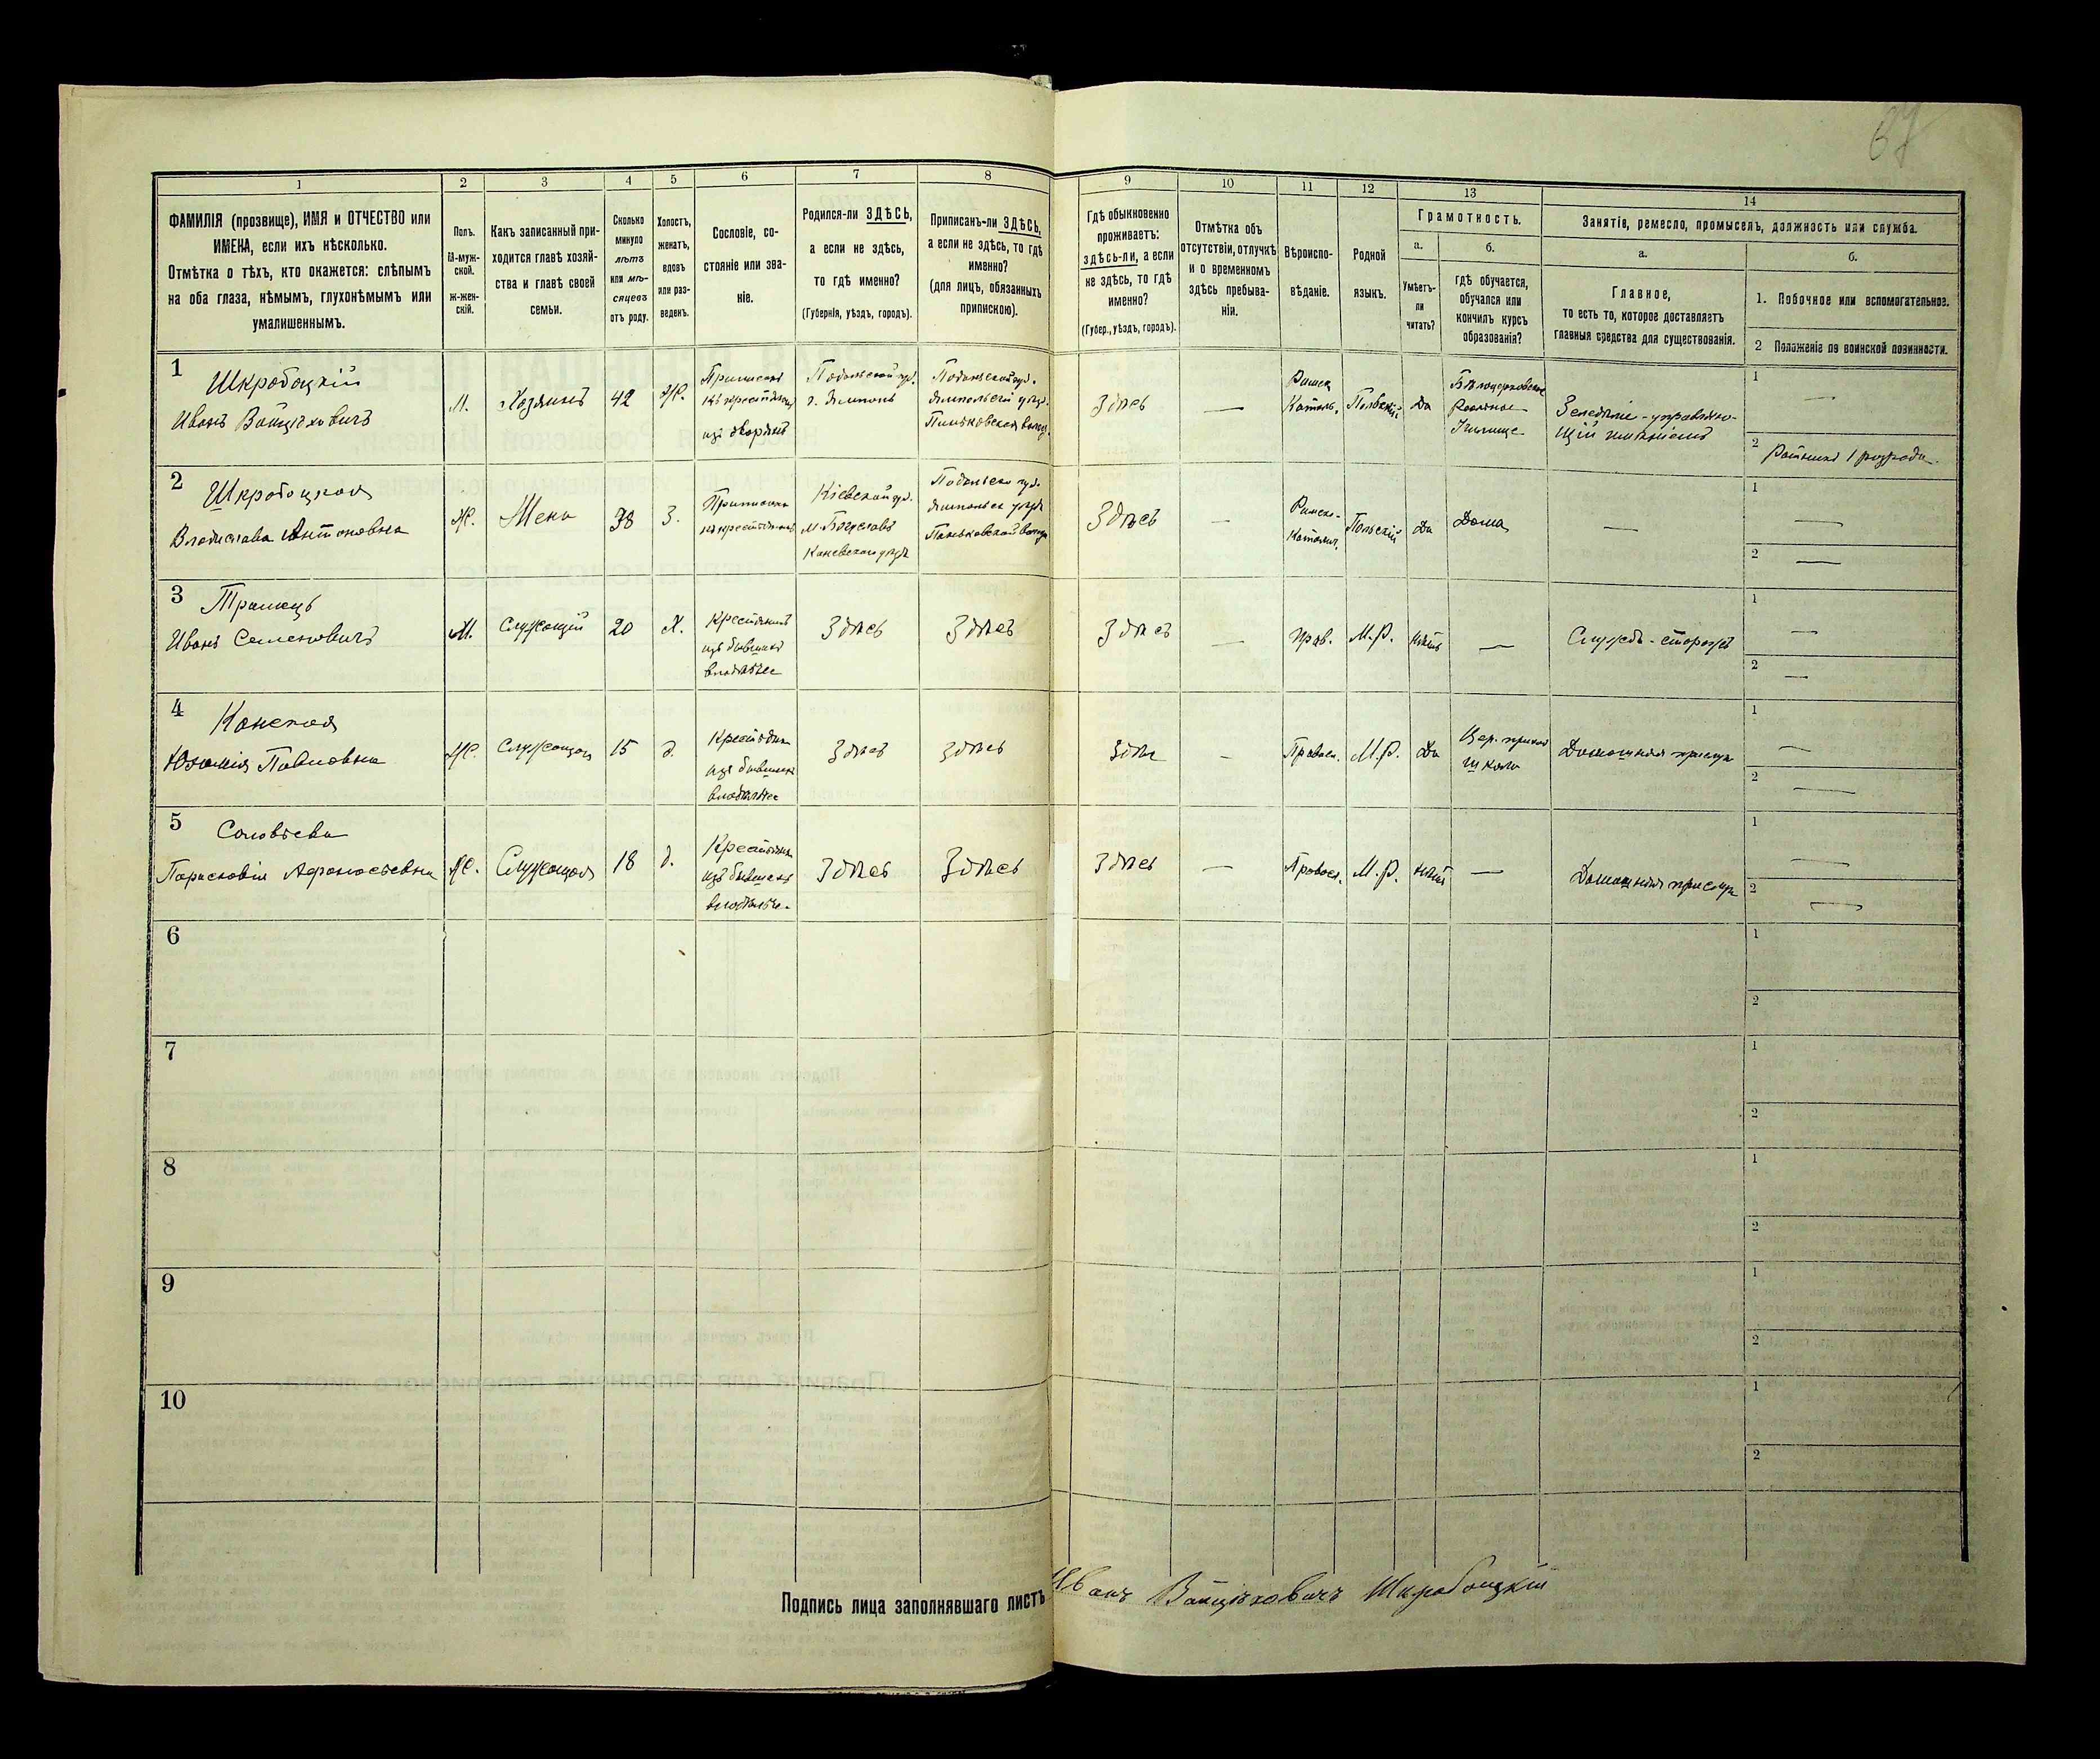 67
1
2
3
4
5
6
7
8
9
10
11
12
13
14
ФАМИЛІЯ (прозвище), ИМЯ и ОТЧЕСТВО или
ИМЕНА, если ихъ нѣсколько.
Отмѣтка о тѣхъ, кто окажется: слѣпымъ
на оба глаза, нѣмымъ, глухонѣмымъ или
умалишеннымъ.
Полъ.
М-муж-
ской.
ж-жен-
скій.
Какъ записанный при-
ходится главѣ хозяй-
ства и главѣ своей
семьи.
Сколько
минуло
лѣтъ
или мѣ-
сяцевъ
отъ роду.
Холостъ,
женатъ,
вдовъ
или раз-
веденъ.
Сословіе, со-
стояніе или зва-
ніе.
Родился-ли ЗДѢСЬ,
а если не здѣсь,
то гдѣ именно?
(Губернія, уѣздъ, городъ).
Приписанъ-ли ЗДѢСЬ,
а если не здѣсь, то гдѣ
именно?
(для лицъ, обязанныхъ
припискою).
Гдѣ обыкновенно
проживаетъ:
здѣсь-ли, а если
не здѣсь, то гдѣ
именно?
(Губер., уѣздъ, городъ).
Отмѣтка объ
отсутствіи, отлучкѣ
и о временномъ
здѣсь пребыва-
ніи.
Вѣроиспо-
вѣданіе.
Родной
языкъ.
Грамотность.
а.
б.
Умѣетъ-
ли
читать?
гдѣ обучается,
обучался или
кончилъ курсъ
образованія?
Занятіе, ремесло, промыселъ, должность или служба.
а.
б.
Главное,
то есть то, которое доставляетъ
главныя средства для существованія.
1. Побочное или вспомогательное.
2 Положеніе по воинской повинности.
1
Шкробоцкій
Иванъ Войцѣховичъ
М.
Хозяинъ
42
Ж.
Приписанъ
къ крестьян
изъ дворянъ
Подольской губ.
г. Ямполь
Подольской губ.
Ямпольскій уѣзд.
Пеньковская волос.
Здѣсь
—
Римск
Католь.
Польскій
Да
Бѣлоцерковское
Реальное
Училище
Земледѣліе - управляю-
щій имѣніемъ
1
—
2
Ратникъ 1 разряда
2
Шкробоцкая
Владислава Антоновна
Ж.
Жена
38
З.
Приписана
къ крестьянамъ
Кіевской губ.
м. Богуславъ
Каневскаго уѣзда
Подольской губ.
Ямпольск уѣзда
Пеньковской волос
Здѣсь
—
Римско-
Католич.
Польскій
Да
Дома
—
1
—
2
—
3
Иванъ Семеновичъ
М.
Служащій
20
Х.
Крестьянинъ
изъ бывшихъ
владѣльчес
Здѣсь
Здѣсь
Здѣсь
—
Прав.
М.Р.
нѣтъ
—
Служба - сторожъ
1
—
2
—
4
Конская
Павловна
Ж.
Служащая
15
д.
Крестьянка
изъ бывшихъ
владѣльчес
Здѣсь
здѣсь
Здѣс
—
Правосл.
М.Р.
Да
Цер. приход
Школа
Домашняя прислуга
1
—
2
—
5
Соловьева
Парасковія Афанасьевна
Ж.
Служащая
18
д.
Крестьянка
изъ бывшихъ
владѣльче.
Здѣсь
Здѣсь
Здѣсь
—
Правосл.
М.Р.
нѣтъ
—
Домашняя прислуга
1
—
2
—
6
1
2
7
1
2
8
1
2
9
1
2
10
1
2
Подпись лица заполнявшаго листъ Иванъ Войцѣховичъ Шкробоцкій